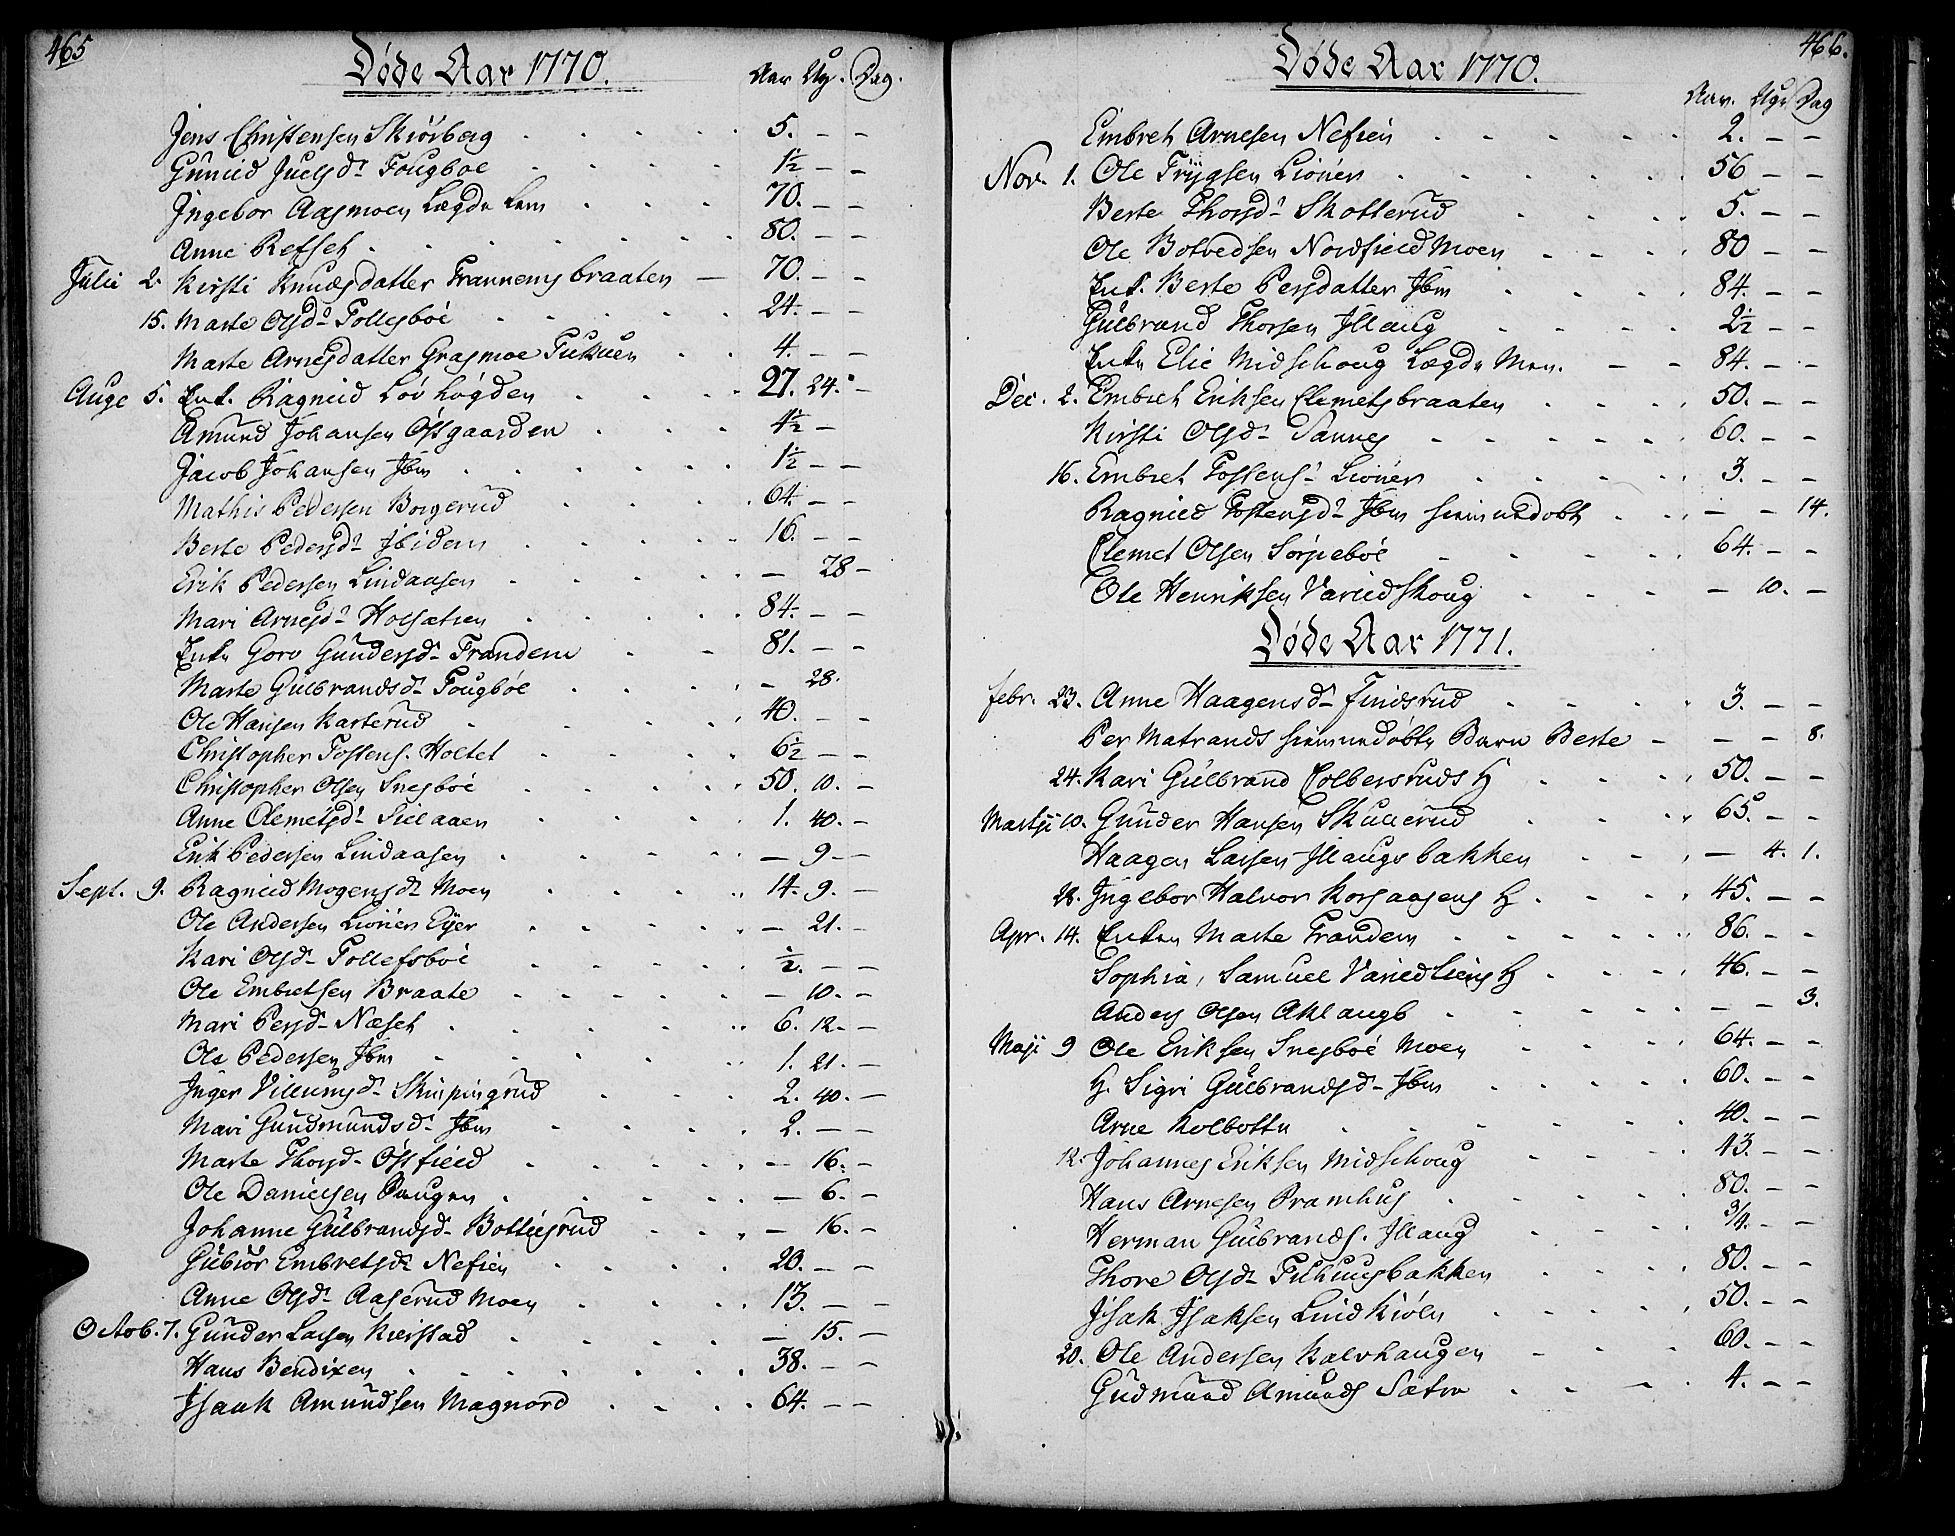 465
Døde Aar 1770.
Aar Ug. Dag.
Jens Christensen Skiørberg 5. — —
Gunild Juelsd: Fougboe 1½ — —
Ingebor Aasmoen Lægds Lem 70. — —
Anne Refset 80. — —
Julii 2. Kirsti Knudsdatter Trannemsbraaten — 70. — —
15. Marte Olsd: Tollefsbøe 24. — —
Marte Arnesdatter Grasmoe 4. — —
Aug: 5. Enk. Ragnild Løvhøgden 27. 24. —
Amund Johansen Østgaarden 4½ —
Jacob Johansen Ibm 1½ — —
Mathis Pedersen Borgerud 64. — —
Berte Pedersd: Ibidem 16. — —
Erik Pedersen Lindaasen — 28 —
Mari Arnesd: Holsætren 84. — —
Enke Goro Gundersd: Trandem 81. — —
Marte Gulbrandsd: Fougbøe — 28.
Ole Hansen Karterud 40. — —
Christopher Tostens. Holtet 6½ — —
Christopher Olsen Snesbøe 50. 10. —
Anne Clemetsd: Lielaaen 1. 40. —
Erik Pedersen Lindaasen — 9 —
Sept. 9. Ragnild Mogensd: Moen 14. 9. —
Ole Andersen Lionen Eyer — 21. —
Kari Olsd: Tollefsbøe ½. — —
Ole Embretsen Braate — 10. —
Mari Persd: Næset 6. 12. —
Ole Pedersen Ibm 1. 21. —
Inger Villumsd: Skinpingrud 2. 40. —
Mari Gudmundsd: Ibm 2. — —
Marte Thorsd: Østfield — 16. —
Ole Danielsen Haugen — 6. —
Johanne Gulbrandsd: Bottilsrud — 16. —
Gubiør Embretsd: Nefsien 20. — —
Anne Olsd: Aaserud Moen 13. — —
Octob. 7. Gunder Larsen Kierstad — 15. —
Hans Bendixen 38. — —
Isaak Amundsen Magnord 64. — —
466.
Døde Aar 1770.
Aar. Ug: Dag
Embret Arnesen Nefsien 2. — —
Nov. 1. Ole Trygsen Lionen 56 — —
Berte Thorsd: Skotterud 5. — —
Ole Botvedsen Nordfield Moen 80 — —
Enk. Berte Persdatter Ibm 84. — —
Gulbrand Thorsen Illaug 2½ — —
Enke Elie Midschoug Lægds Mon. — — 84. — —
Dec. 2. Embret Eriksen Clemetsbraaten 50. — —
Kirsti Olsd: Sannes 60. — —
16. Embret Tostens: Lionen 3. — —
Ragnild Tostensd: Ibm hiemmedøbt — — 14.
Clemet Olsen Sørpebøe 64. — —
Ole Henriksen Varildskoug — 10. —
Døde Aar 1771.
Febr. 23. Anne Haagensd: Findsrud 3. — —
Per Matrands hiemmedøbte Barn Berte — — — 8.
24. Kari Gulbrand Colbersruds H 50. — —
Martji 10. Gunder Hansen Skullerud 65. — —
Haagen Larsen Illaugsbakken — 4. 1.
28. Ingebor Halvor Korsaasens H 45. — —
Apr. 14. Enken Marte Trandem 86. — —
Sophia, Samuel Varildliens H 46. — —
Anders Olsen Aklangb — — 3.
Maji 9 Ole Eriksen Snesbøe Moen 64. — —
H. Sigri Gulbrandsd: Ibm 60. — —
Arne Kolbotten 40. — —
12. Johannes Eriksen Midschoug 43. — —
Hans Arnesen Pramhus 80. — —
Herman Gulbrands. Illaug 3/4. — —
Thore Olsd: 80. — —
Isak Isaksen Lindkiøln 50. — —
20. Ole Andersen Kalvhaugen 60. — —
Gudmund Amunds Sætre 4. — —